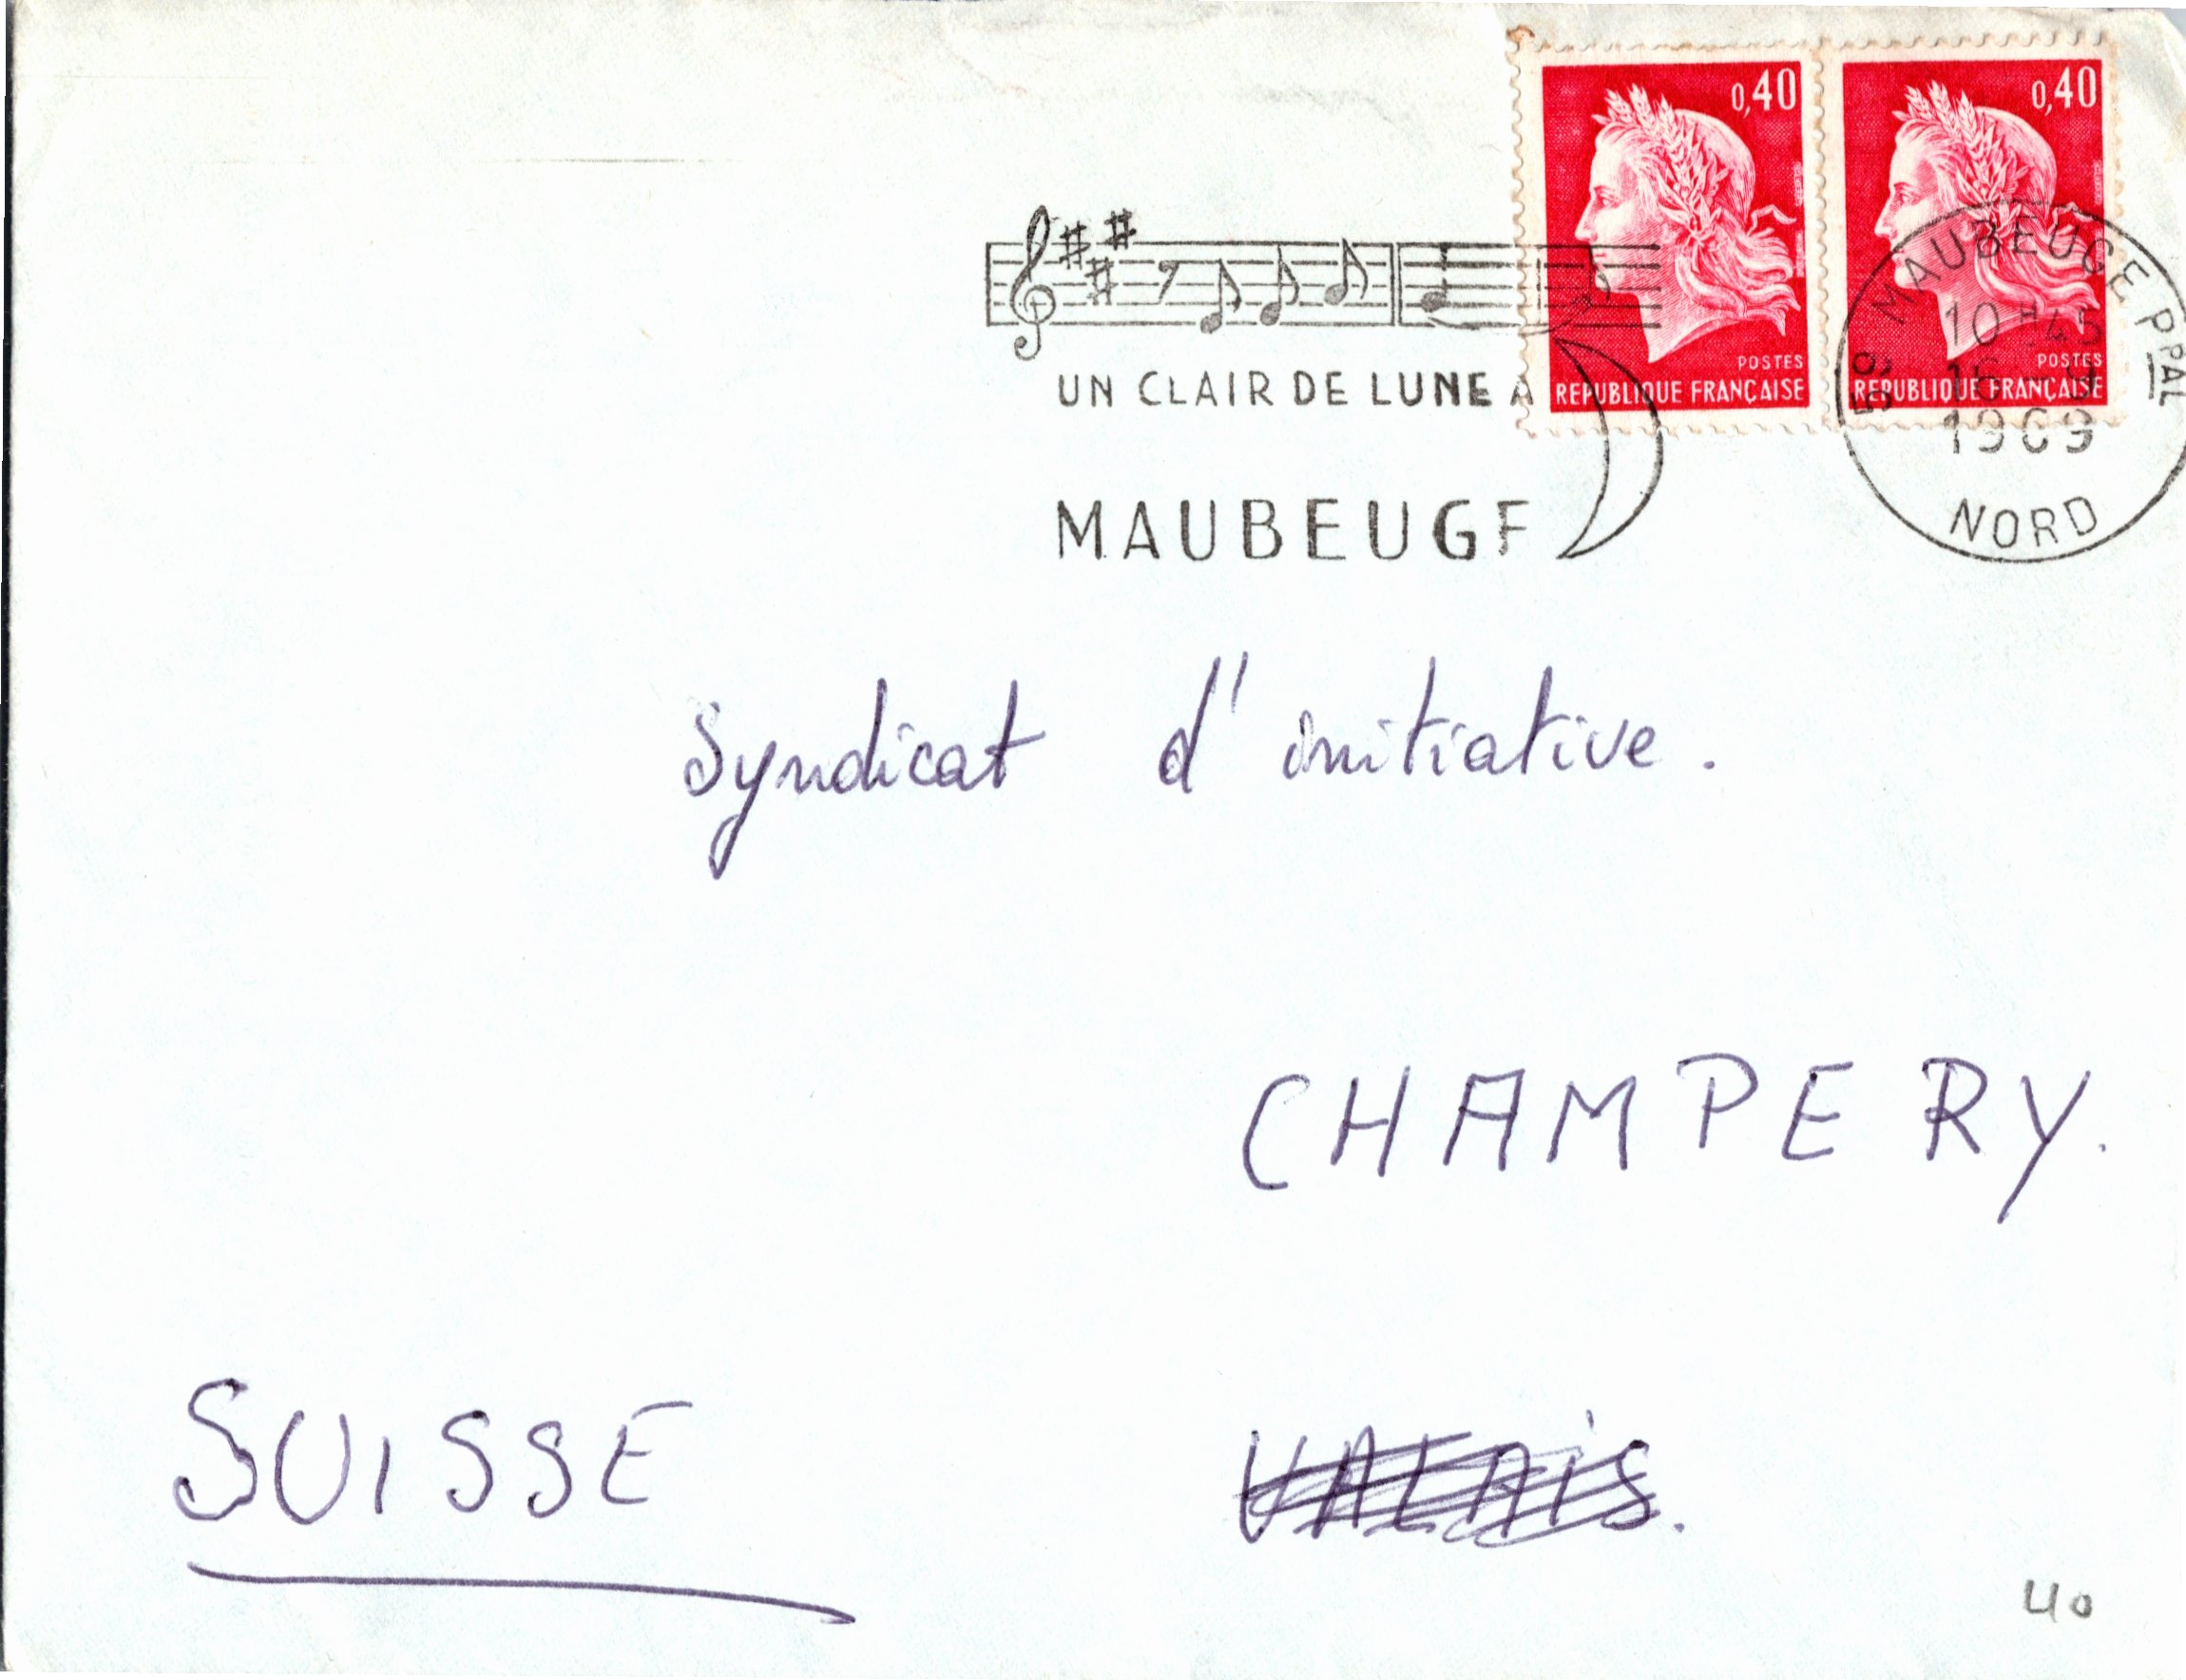 0,40
POSTES
REPUBLIQUE FRANÇAISE
0,40
POSTES
REPUBLIQUE FRANÇAISE
UN CLAIR DE LUNE A
MAUBEUGE
MAUBEUGE PPAL
59
10 H 45
16
1969
NORD
Syndicat d'initiative.
CHAMPERY.
SUISSE
VALAIS.
40